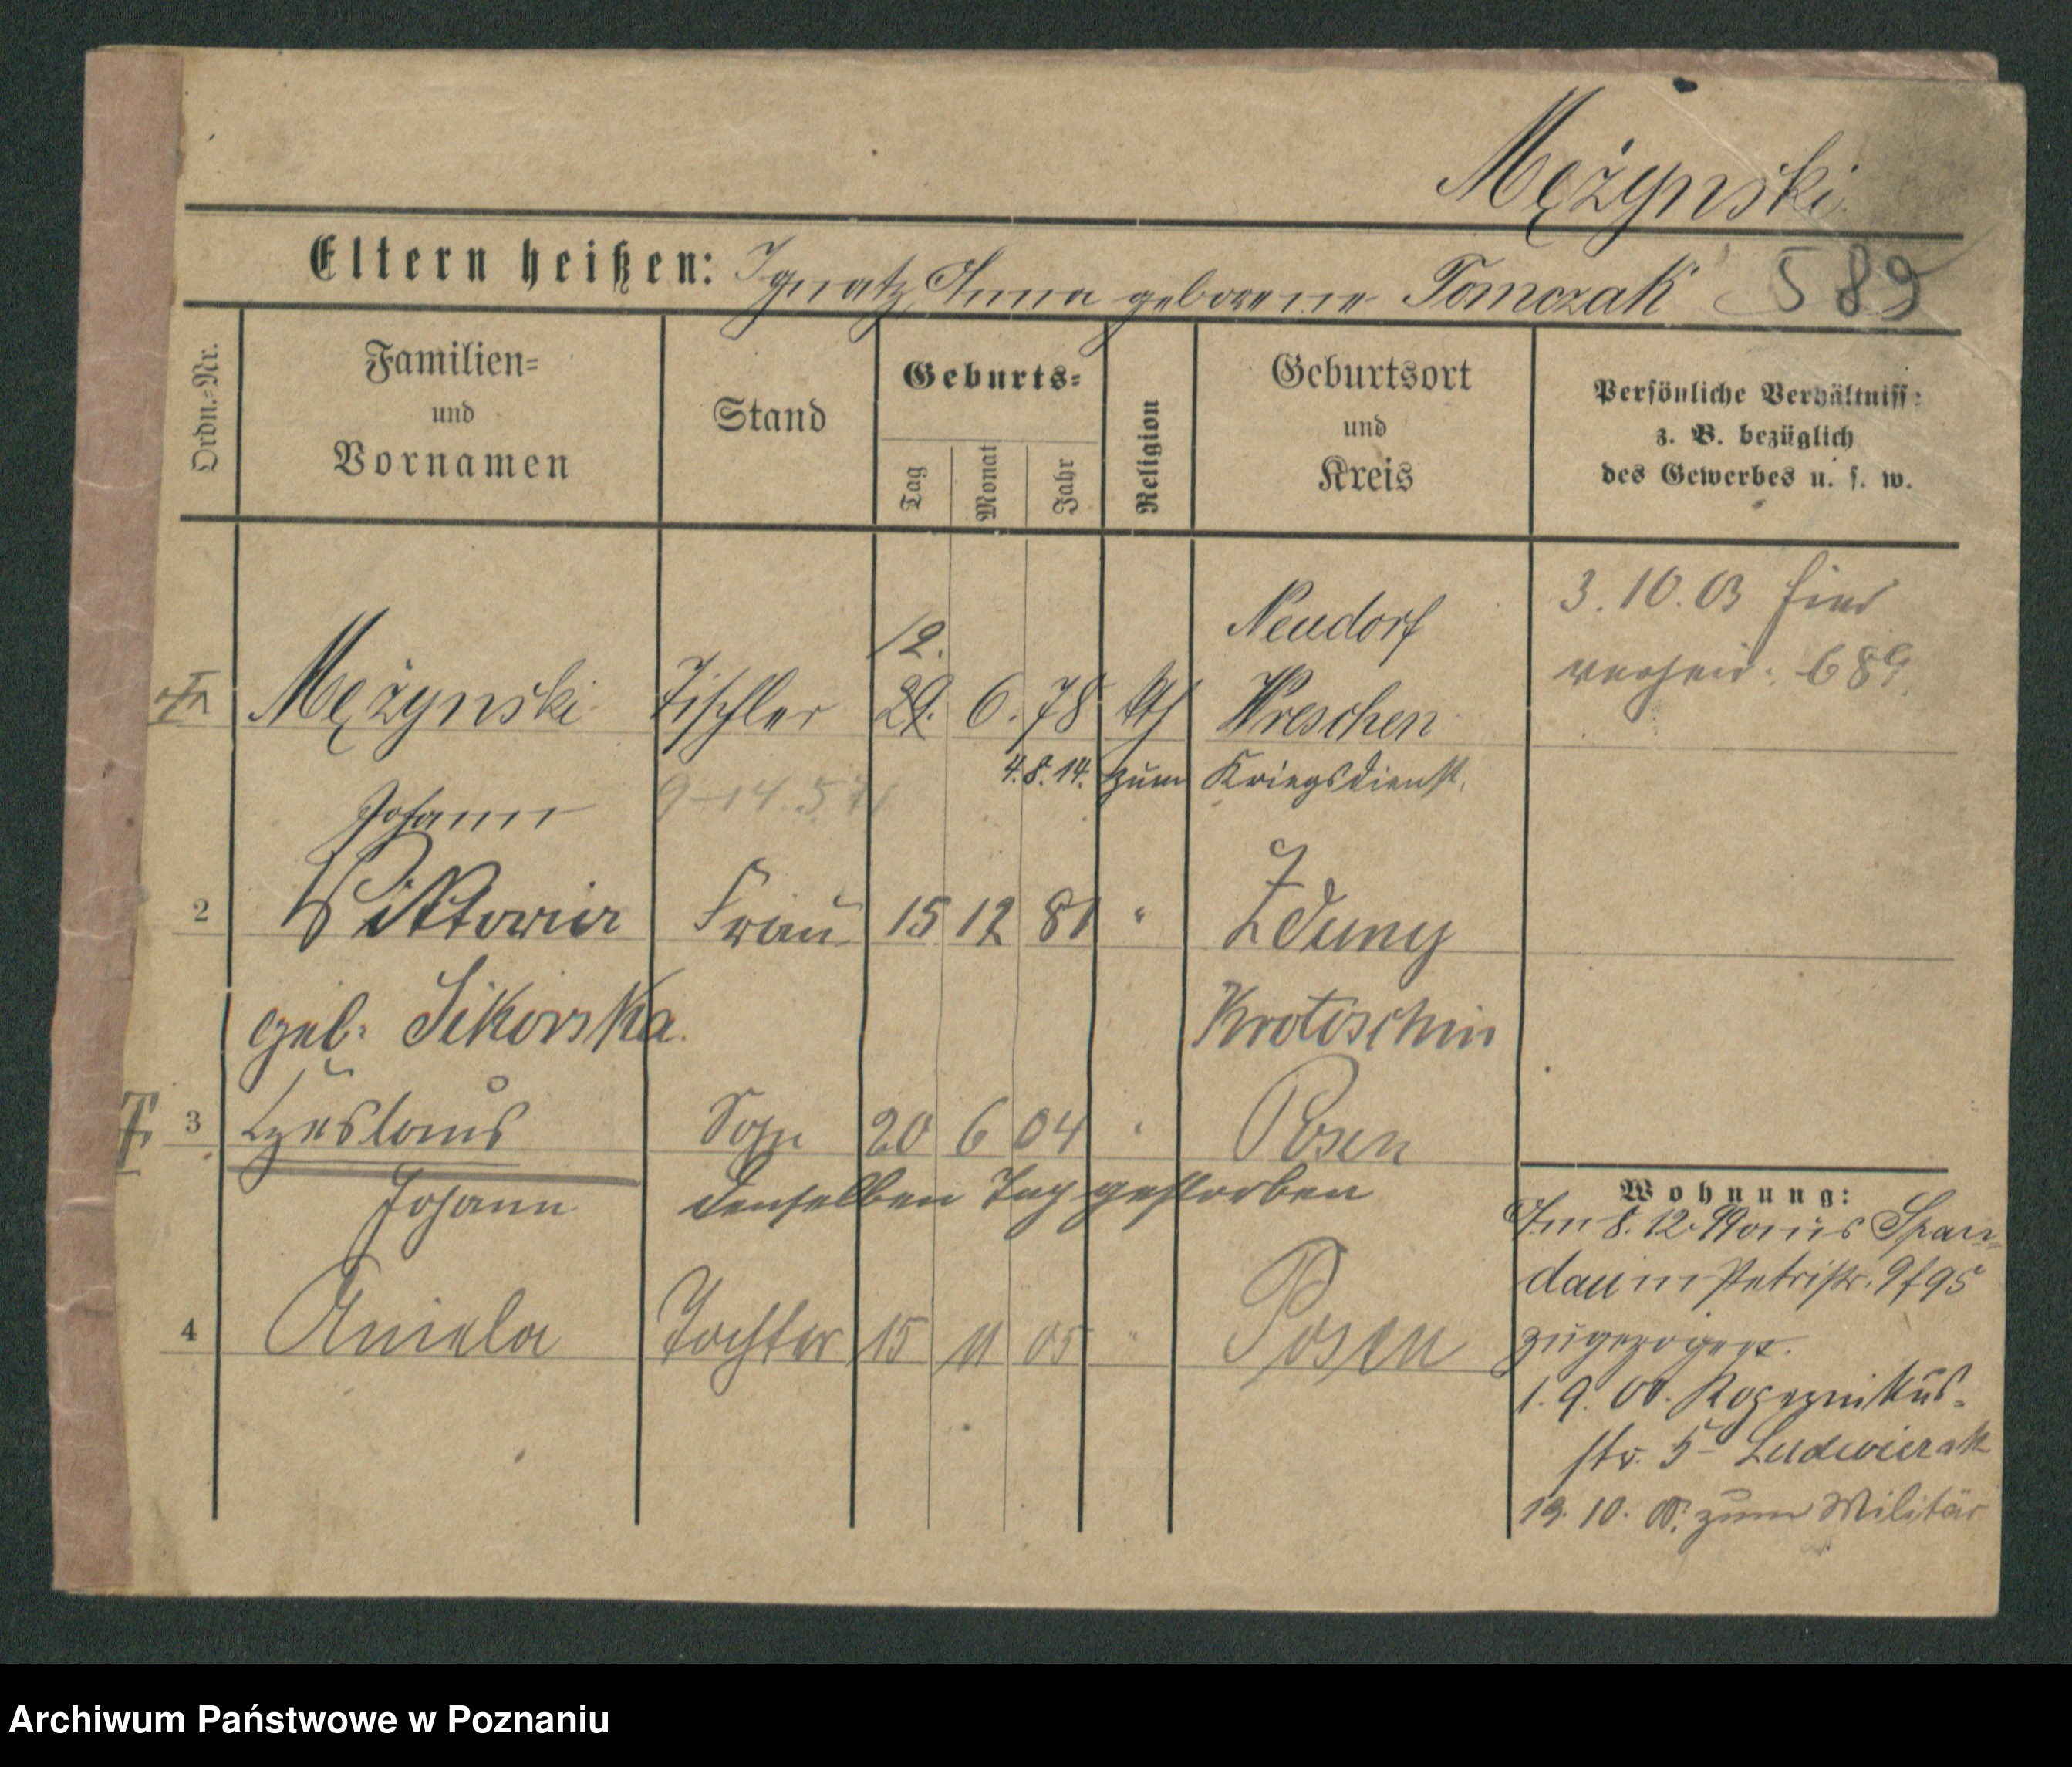 Mężynski
Eltern heißen: Ignatz, Anna geborene Tomczak 589
Ordn.-Nr.
Familien-
und
Vornamen
Stand
Geburts-
Tag
Monat
Jahr
Religion
Geburtsort
und
Kreis
Persönliche Verhältnisse
z. B. bezüglich
des Gewerbes u. s. w.
3. 10. 03 hier
Neudorf
12.
Mężynski Tischler 29. 6. 78 kth Wreschen
4.8.14. zum Kriegsdienst.
Johann
2 Viktoria Frau 15 12 81 " Zduny
geb. Sikorska. Krotoschin
3 Czeslaus Sohn 20 6 04 " Posen
Johann denselben Tag gestorben
4 Aniela Tochter 15 11 05 " Posen
Wohnung:
Am 8. 12. 99 aus Span-
dau in Petristr. 9 f 95
zugezogen.
1. 9. 00.
str. 5 Ludwiczak
19. 10. 00. zum Militär
Archiwum Państwowe w Poznaniu